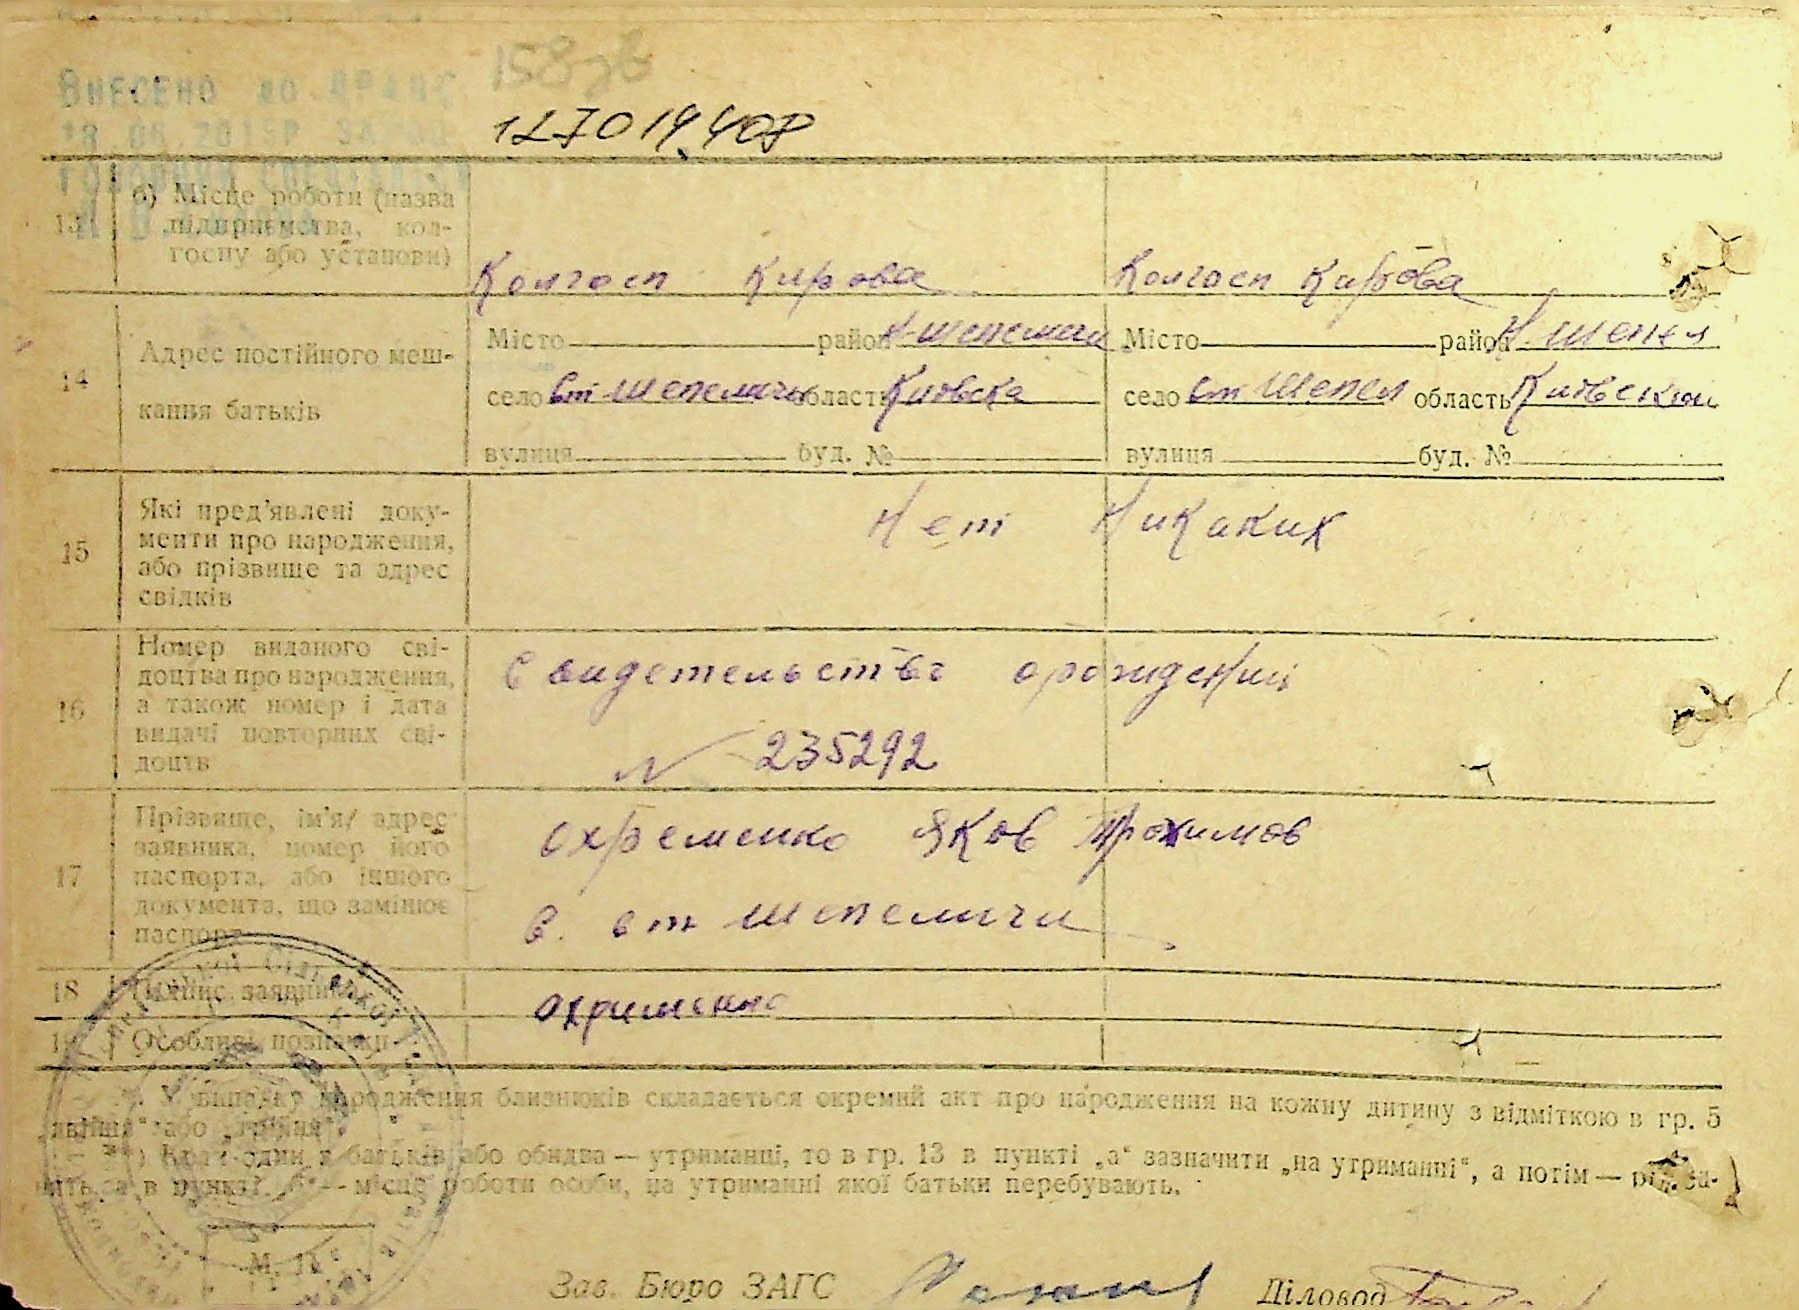 158зв
Внесено до ДРАЦС
1270 19.40р
13
б) Місце роботи (назва
підприємства, кол-
госпу або установи)
Колгосп Кирова
Колгосп Кирова
14
Адрес постійного меш-
кання батьків
Місто район Н-Шепеличи
село вт Шепеличи область Киівска
вулиця буд. №
Місто район Н. Шепел
село вт Шепел область
вулиця буд. №
15
Які пред'явлені доку-
менти про народження,
або прізвище та адрес
свідків
Нет Никаких
16
Номер виданого сві-
доцтва про народження,
а також номер і дата
видачі повторних сві-
доцтв
Свидетельство орождении
N 235292
17
Прізвище, ім'я, адрес
заявника, номер його
паспорта, або іншого
документа, що замінює
паспорт
Охременко Яков Трохимов
с. вт Шепеличи
18
Підпис заявника
Охрименко
19
Особливі позначки
У випадку народження близнюків складається окремий акт про народження на кожну дитину з відміткою в гр. 5
„двійня" або „трійня".
**) Коли один з батьків або обидва — утриманці, то в гр. 13 в пункті „а" зазначити „на утриманні", а потім —
в пункті — місце роботи особи, на утриманні якої батьки перебувають.
М. П.
Зав. Бюро ЗАГС
Діловод